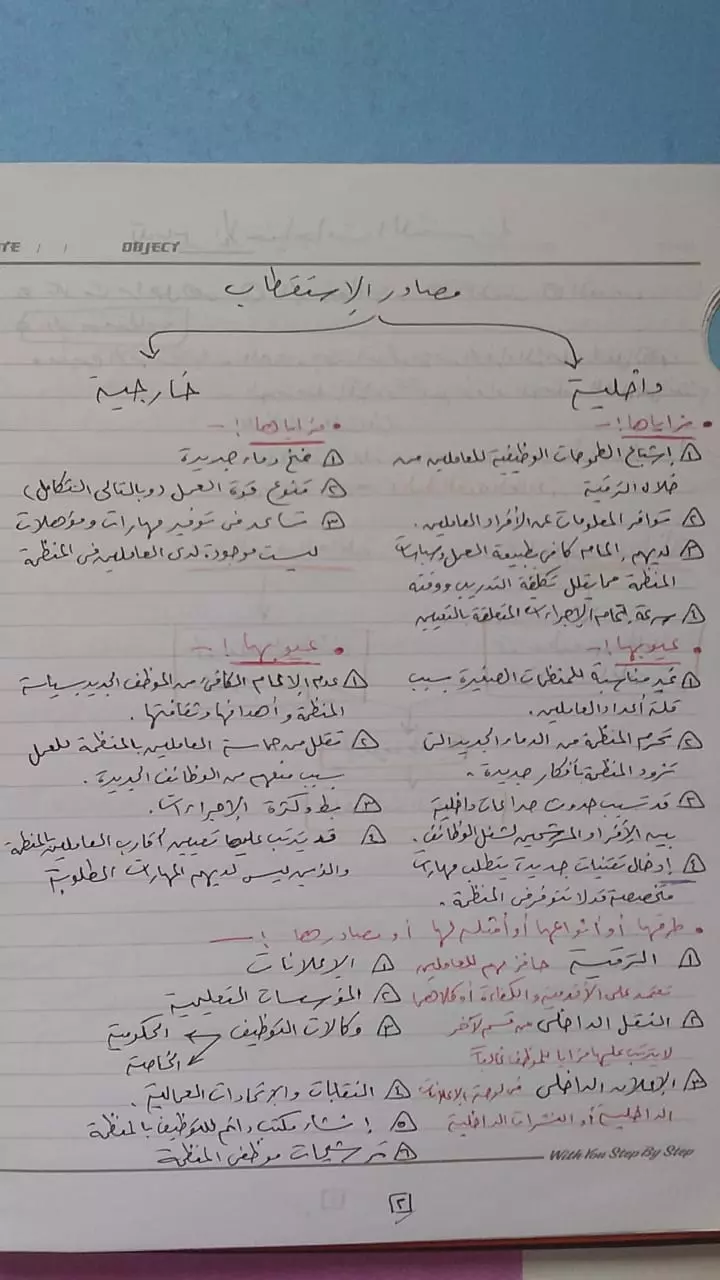 OBJECT
مصادر الإستقطاب
داخلية
• مزاياها :-
١ إشباع الطموحات الوظيفية للعاملين من
خلال الترقية
٢ توافر المعلومات عن الأفراد العاملين.
٣ لديهم إلمام كافى بطبيعة العمل وسياسات
المنظمة مما يقلل تكلفة التدريب ووقته
٤ سرعة إتمام الإجراءات المتعلقة بالتعيين
• عيوبها :-
١ غير مناسبة للمنظمات الصغيرة بسبب
قلة أعداد العاملين.
٢ تحرم المنظمة من الدماء الجديدة التى
تزود المنظمة بأفكار جديدة.
٣ قد تسبب حدوث صراعات داخلية
بين الأفراد المرشحين لشغل الوظائف.
٤ إدخال تقنيات جديدة يتطلب مهارات
متخصصة قد لا تتوفر فى المنظمة.
خارجية
• مزاياها :-
١ ضخ دماء جديدة
٢ تنوع قوة العمل (وبالتالى التكامل)
٣ تساعد فى توفير مهارات ومؤهلات
ليست موجودة لدى العاملين فى المنظمة
• عيوبها :-
١ عدم الإلمام الكافى من الموظف الجديد بسياسة
المنظمة وأهدافها وثقافتها.
٢ تقلل من حماسة العاملين بالمنظمة للعمل
بسبب منعهم من الوظائف الجديدة.
٣ بطء وكثرة الإجراءات.
٤ قد يترتب عليها تعيين أقارب العاملين بالمنظمة
والذين ليس لديهم المهارات المطلوبة
• طرقها أو أنواعها أو أمثلة لها أو مصادرها :-
١ الترقية حافز مهم للعاملين
تعتمد على الأقدمية والكفاءة أو كلاهما
٢ النقل الداخلى من قسم لآخر
لا يترتب عليها مزايا للموظف غالباً
٣ الإعلان الداخلى فى لوحة الإعلانات
الداخلية أو النشرات الداخلية
١ الإعلانات
٢ المؤسسات التعليمية
٣ وكالات التوظيف الحكومية
الخاصة
٤ النقابات والإتحادات العمالية.
٥ إنشاء مكتب دائم للتوظيف بالمنظمة
٦ ترشيحات موظفى المنظمة
With You Step By Step
٢